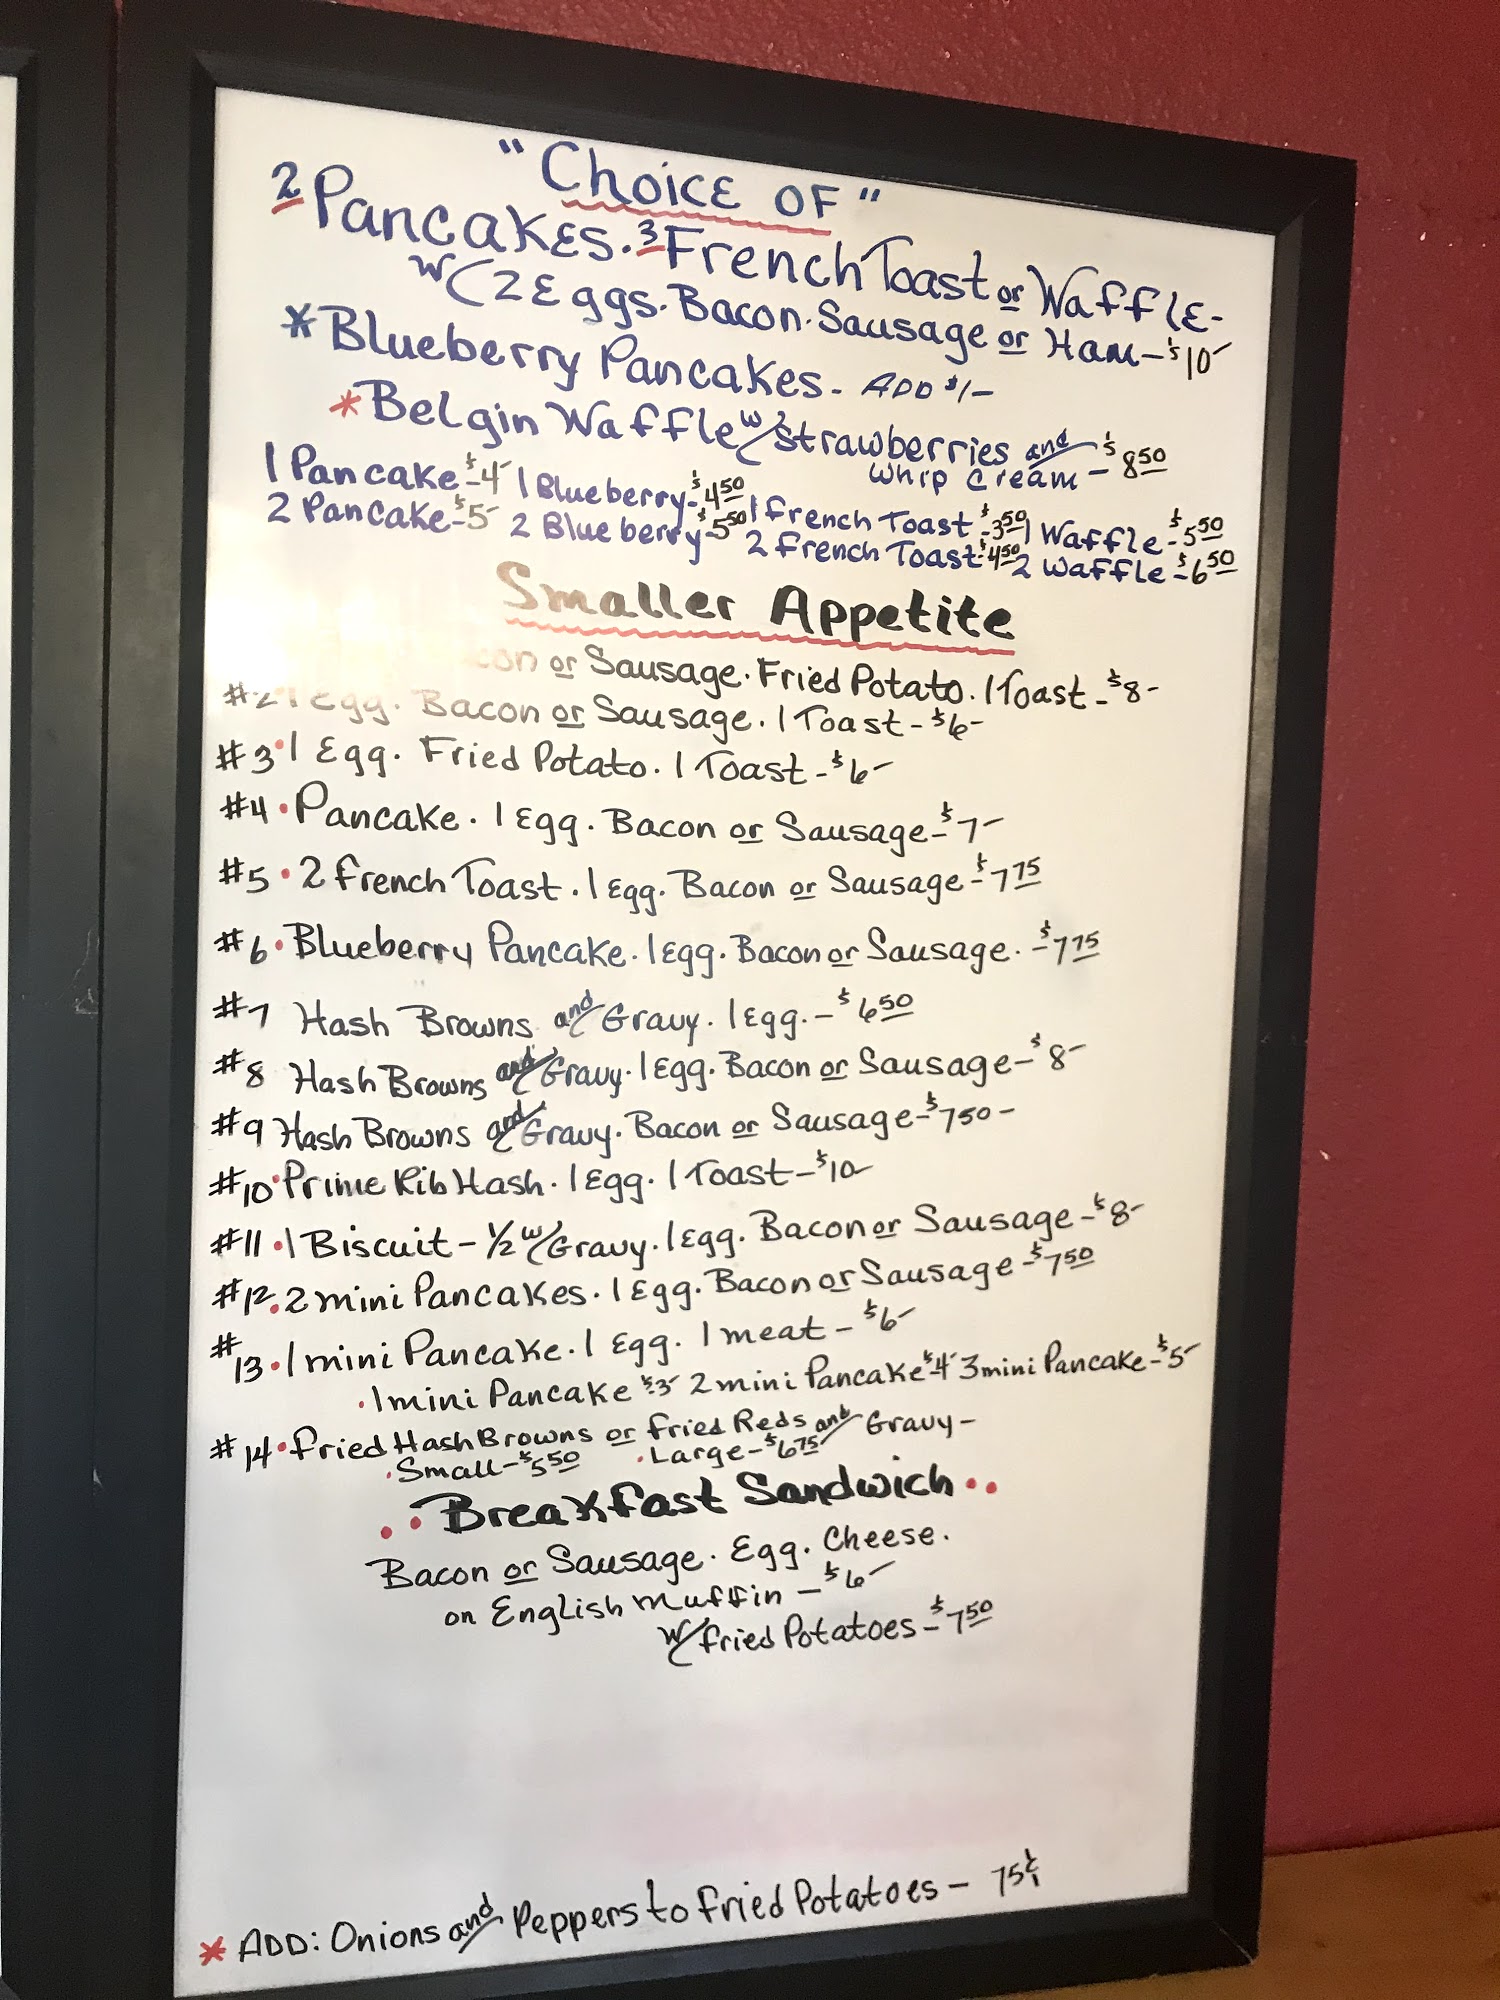 "Choice OF"
2 Pancakes. 3 French Toast or Waffle-
w/ 2 Eggs. Bacon. Sausage or Ham - $10-
* Blueberry Pancakes - ADD $1-
* Belgin Waffle w/ strawberries and
whip cream - $8 50
1 Pancake - $4- 1 Blueberry - $4 50 1 french Toast - $3 50 1 Waffle - $5 50
2 Pancake - $5- 2 Blueberry - $5 50 2 french Toast - $4 50 2 Waffle - $6 50
Smaller Appetite
or Sausage. Fried Potato. 1 Toast - $8-
#2 1 Egg. Bacon or Sausage. 1 Toast - $6-
#3 • 1 Egg. Fried Potato. 1 Toast - $6-
#4 • Pancake. 1 Egg. Bacon or Sausage - $7-
#5 • 2 french Toast. 1 Egg. Bacon or Sausage - $7 75
#6 • Blueberry Pancake. 1 Egg. Bacon or Sausage. - $7 75
#7 Hash Browns and Gravy. 1 Egg. - $6 50
#8 Hash Browns and Gravy. 1 Egg. Bacon or Sausage - $8-
#9 Hash Browns and Gravy. Bacon or Sausage - $7 50 -
#10 • Prime Rib Hash. 1 Egg. 1 Toast - $10-
#11 • 1 Biscuit - 1/2 w/ Gravy. 1 Egg. Bacon or Sausage - $8-
#12 • 2 mini Pancakes. 1 Egg. Bacon or Sausage - $7 50
#13 • 1 mini Pancake. 1 Egg. 1 meat - $6-
• 1 mini Pancake $3- 2 mini Pancake $4- 3 mini Pancake - $5-
#14 • fried Hash Browns or fried Reds and Gravy -
• Small - $5 50 • Large - $6 75
•• Breakfast Sandwich ••
Bacon or Sausage. Egg. Cheese.
on English muffin - $6-
w/ fried Potatoes - $7 50
* ADD: Onions and Peppers to fried Potatoes - 75¢